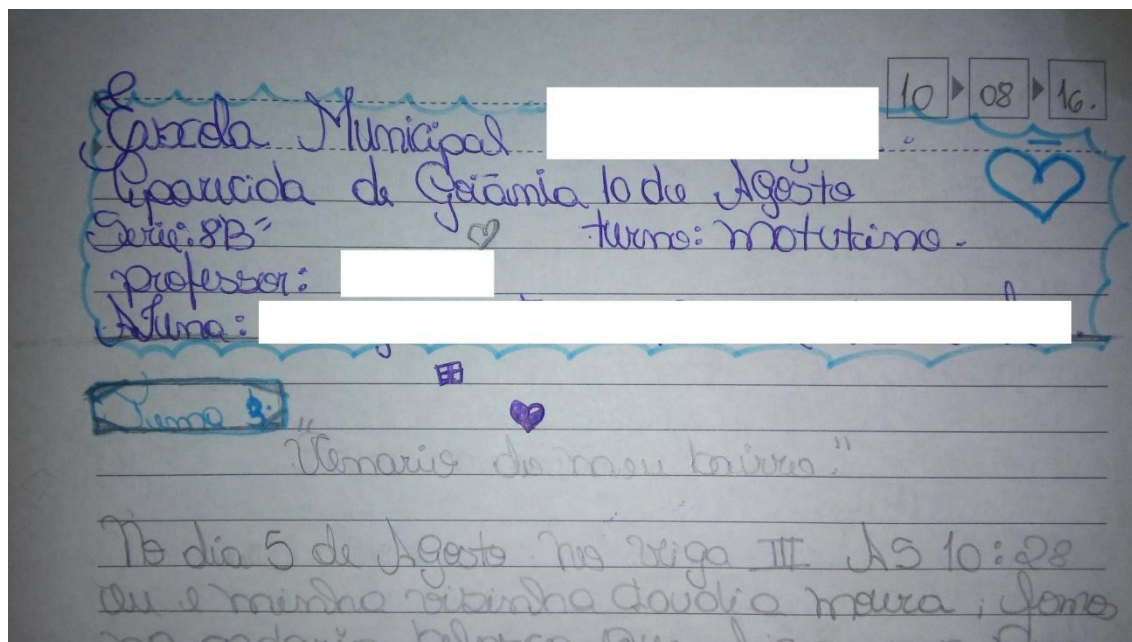 10 08 16.
Escola Municipal
Aparecida de Goiânia 10 de Agosto
Serie: 8B" turno: matutino.
professor:
Aluna:
Tema
" do meu bairro."
No dia 5 de Agosto no veiga III AS 10:28
eu e minha vizinha claudia moura, fomos
na padaria beleza que